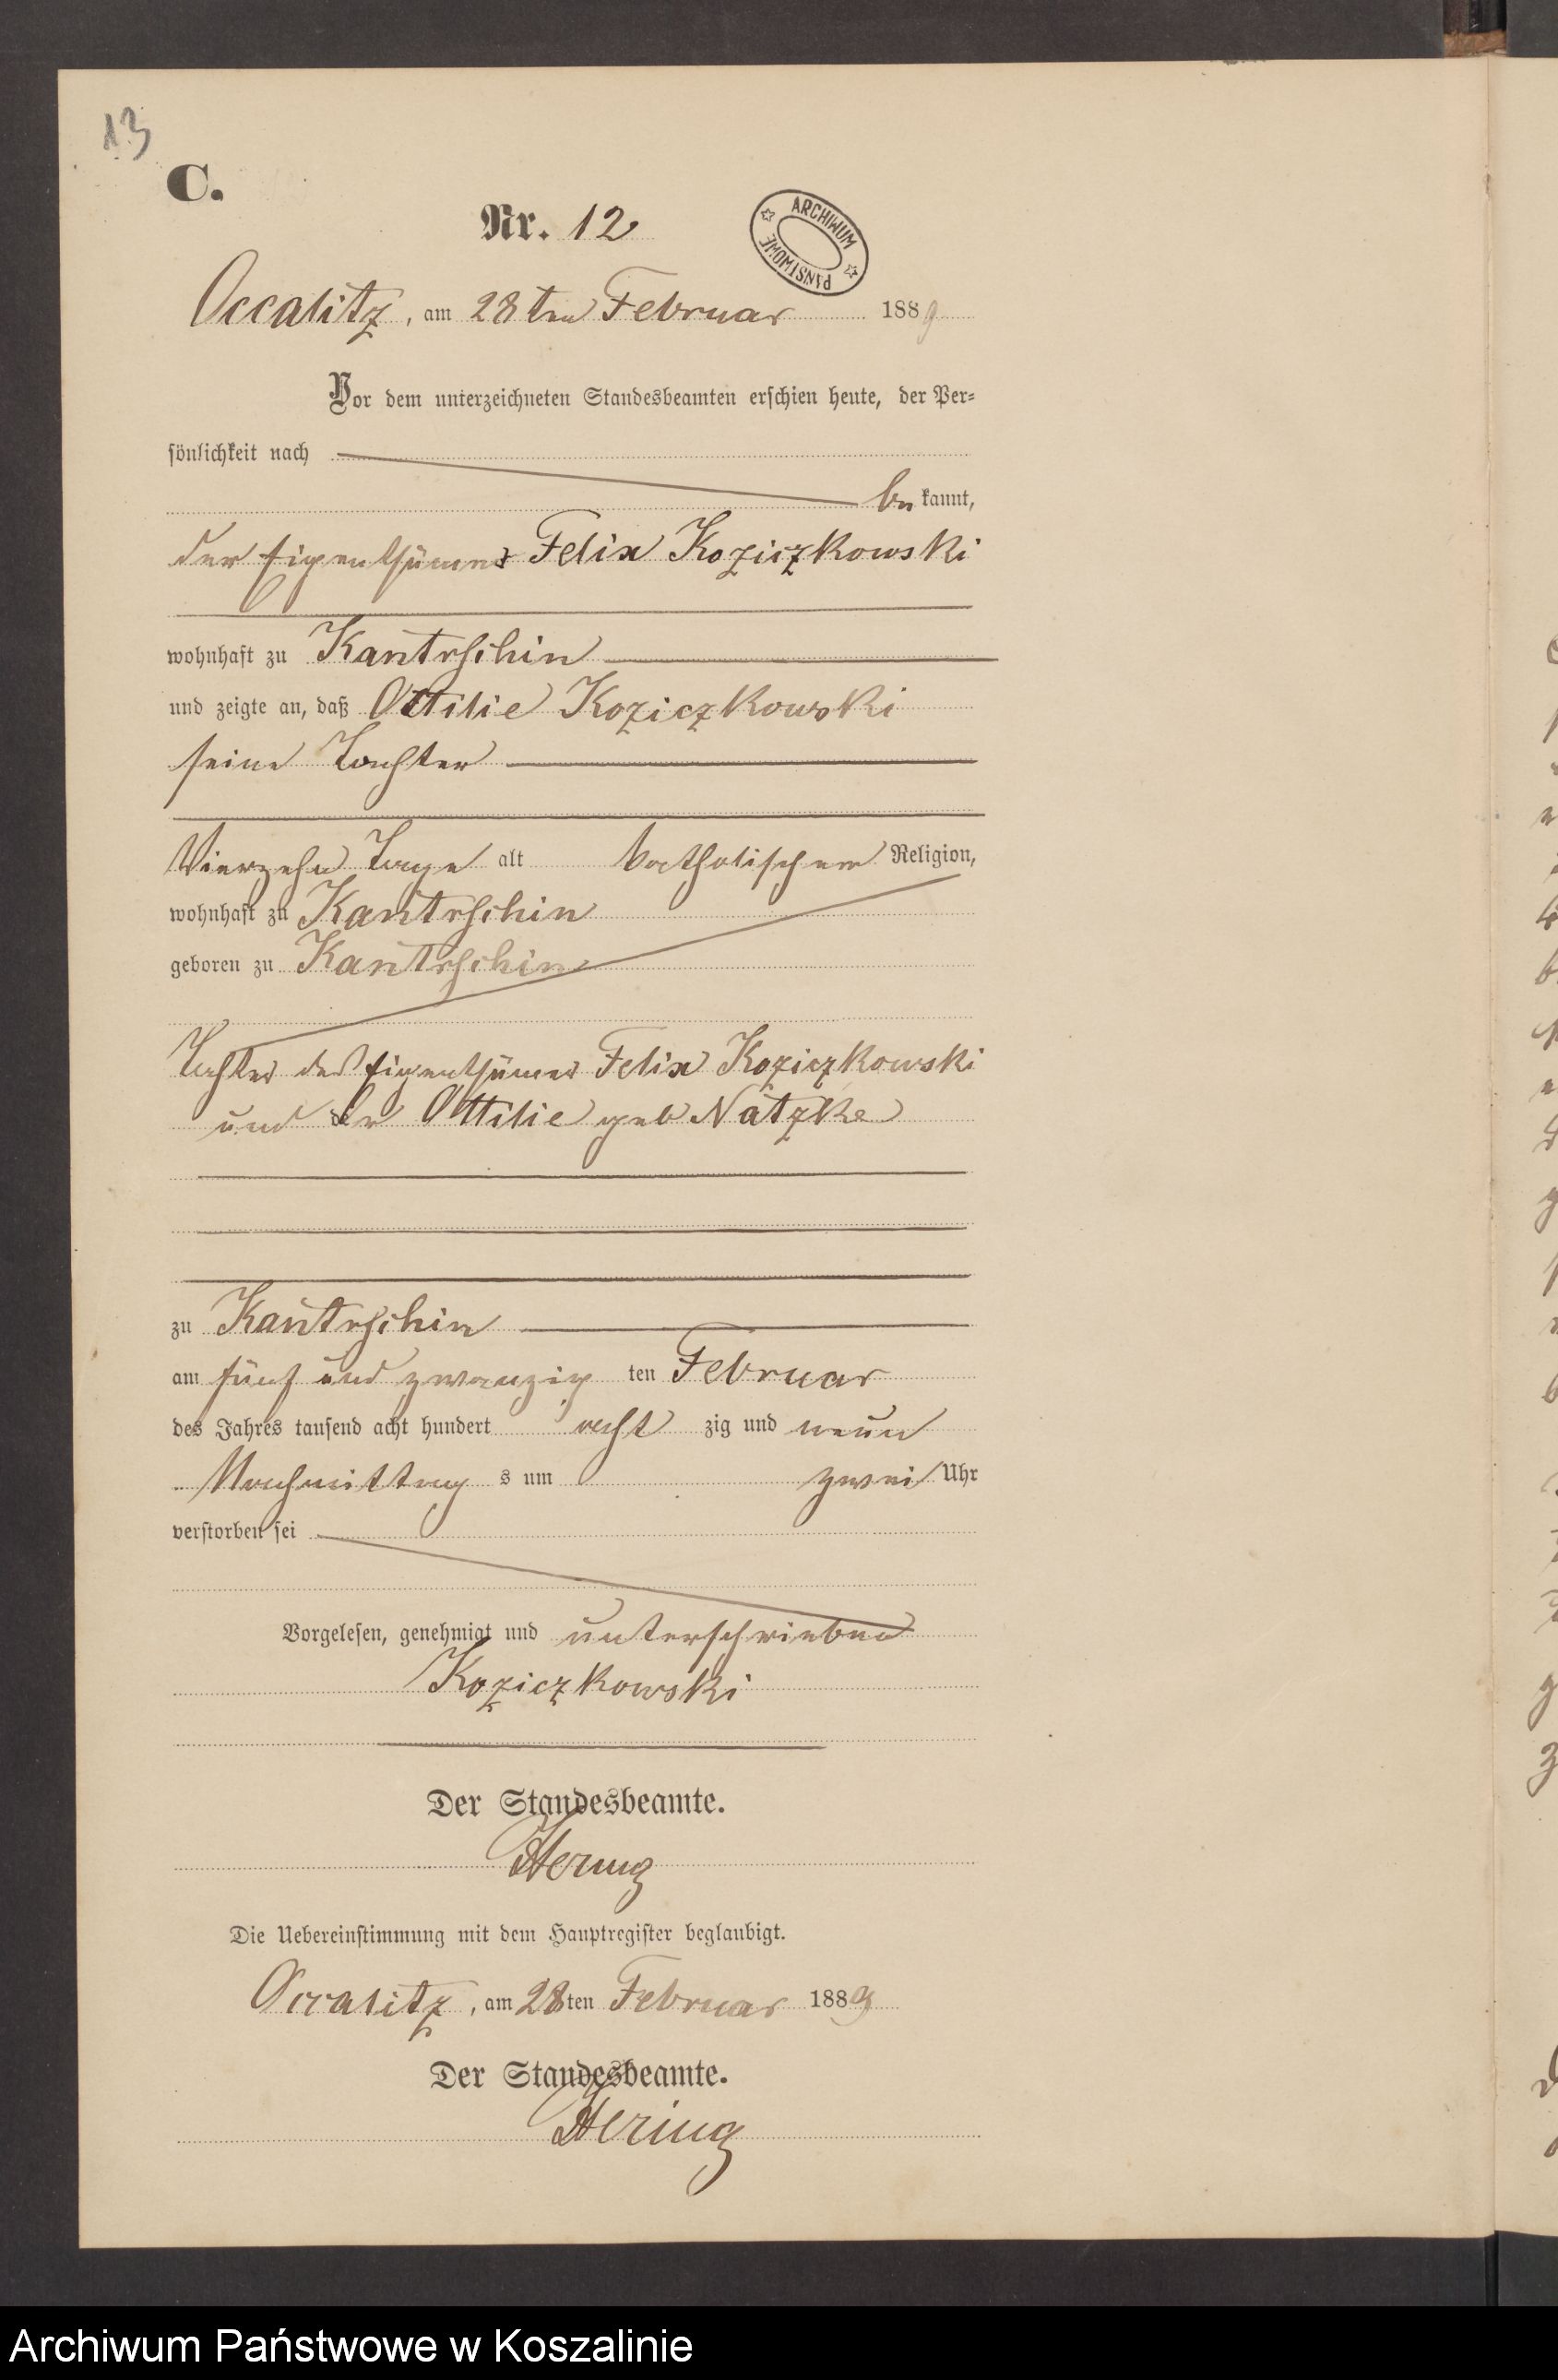 13
C.
Nr. 12
ARCHIWUM PAŃSTWOWE
Occalitz, am 28ten Februar 1889
Vor dem unterzeichneten Standesbeamten erschien heute, der Per-
sönlichkeit nach
bekannt,
der Eigenthümer Felix Koziczkowski
wohnhaft zu Kantrschin
und zeigte an, daß Ottilie Koziczkowski
seine Tochter
Vierzehn Tage alt katholischer Religion,
wohnhaft zu Kantrschin
geboren zu Kantrschin
Tochter des Eigenthümer Felix Koziczkowski
und der Ottilie geb Natzke
zu Kantrschin
am fünf und zwanzig ten Februar
des Jahres tausend acht hundert acht zig und neun
Nachmittag s um zwei Uhr
verstorben sei
Vorgelesen, genehmigt und unterschrieben
Koziczkowski
Der Standesbeamte.
Hering
Die Uebereinstimmung mit dem Hauptregister beglaubigt.
Occalitz, am 28ten Februar 1889
Der Standesbeamte.
Hering
Archiwum Państwowe w Koszalinie